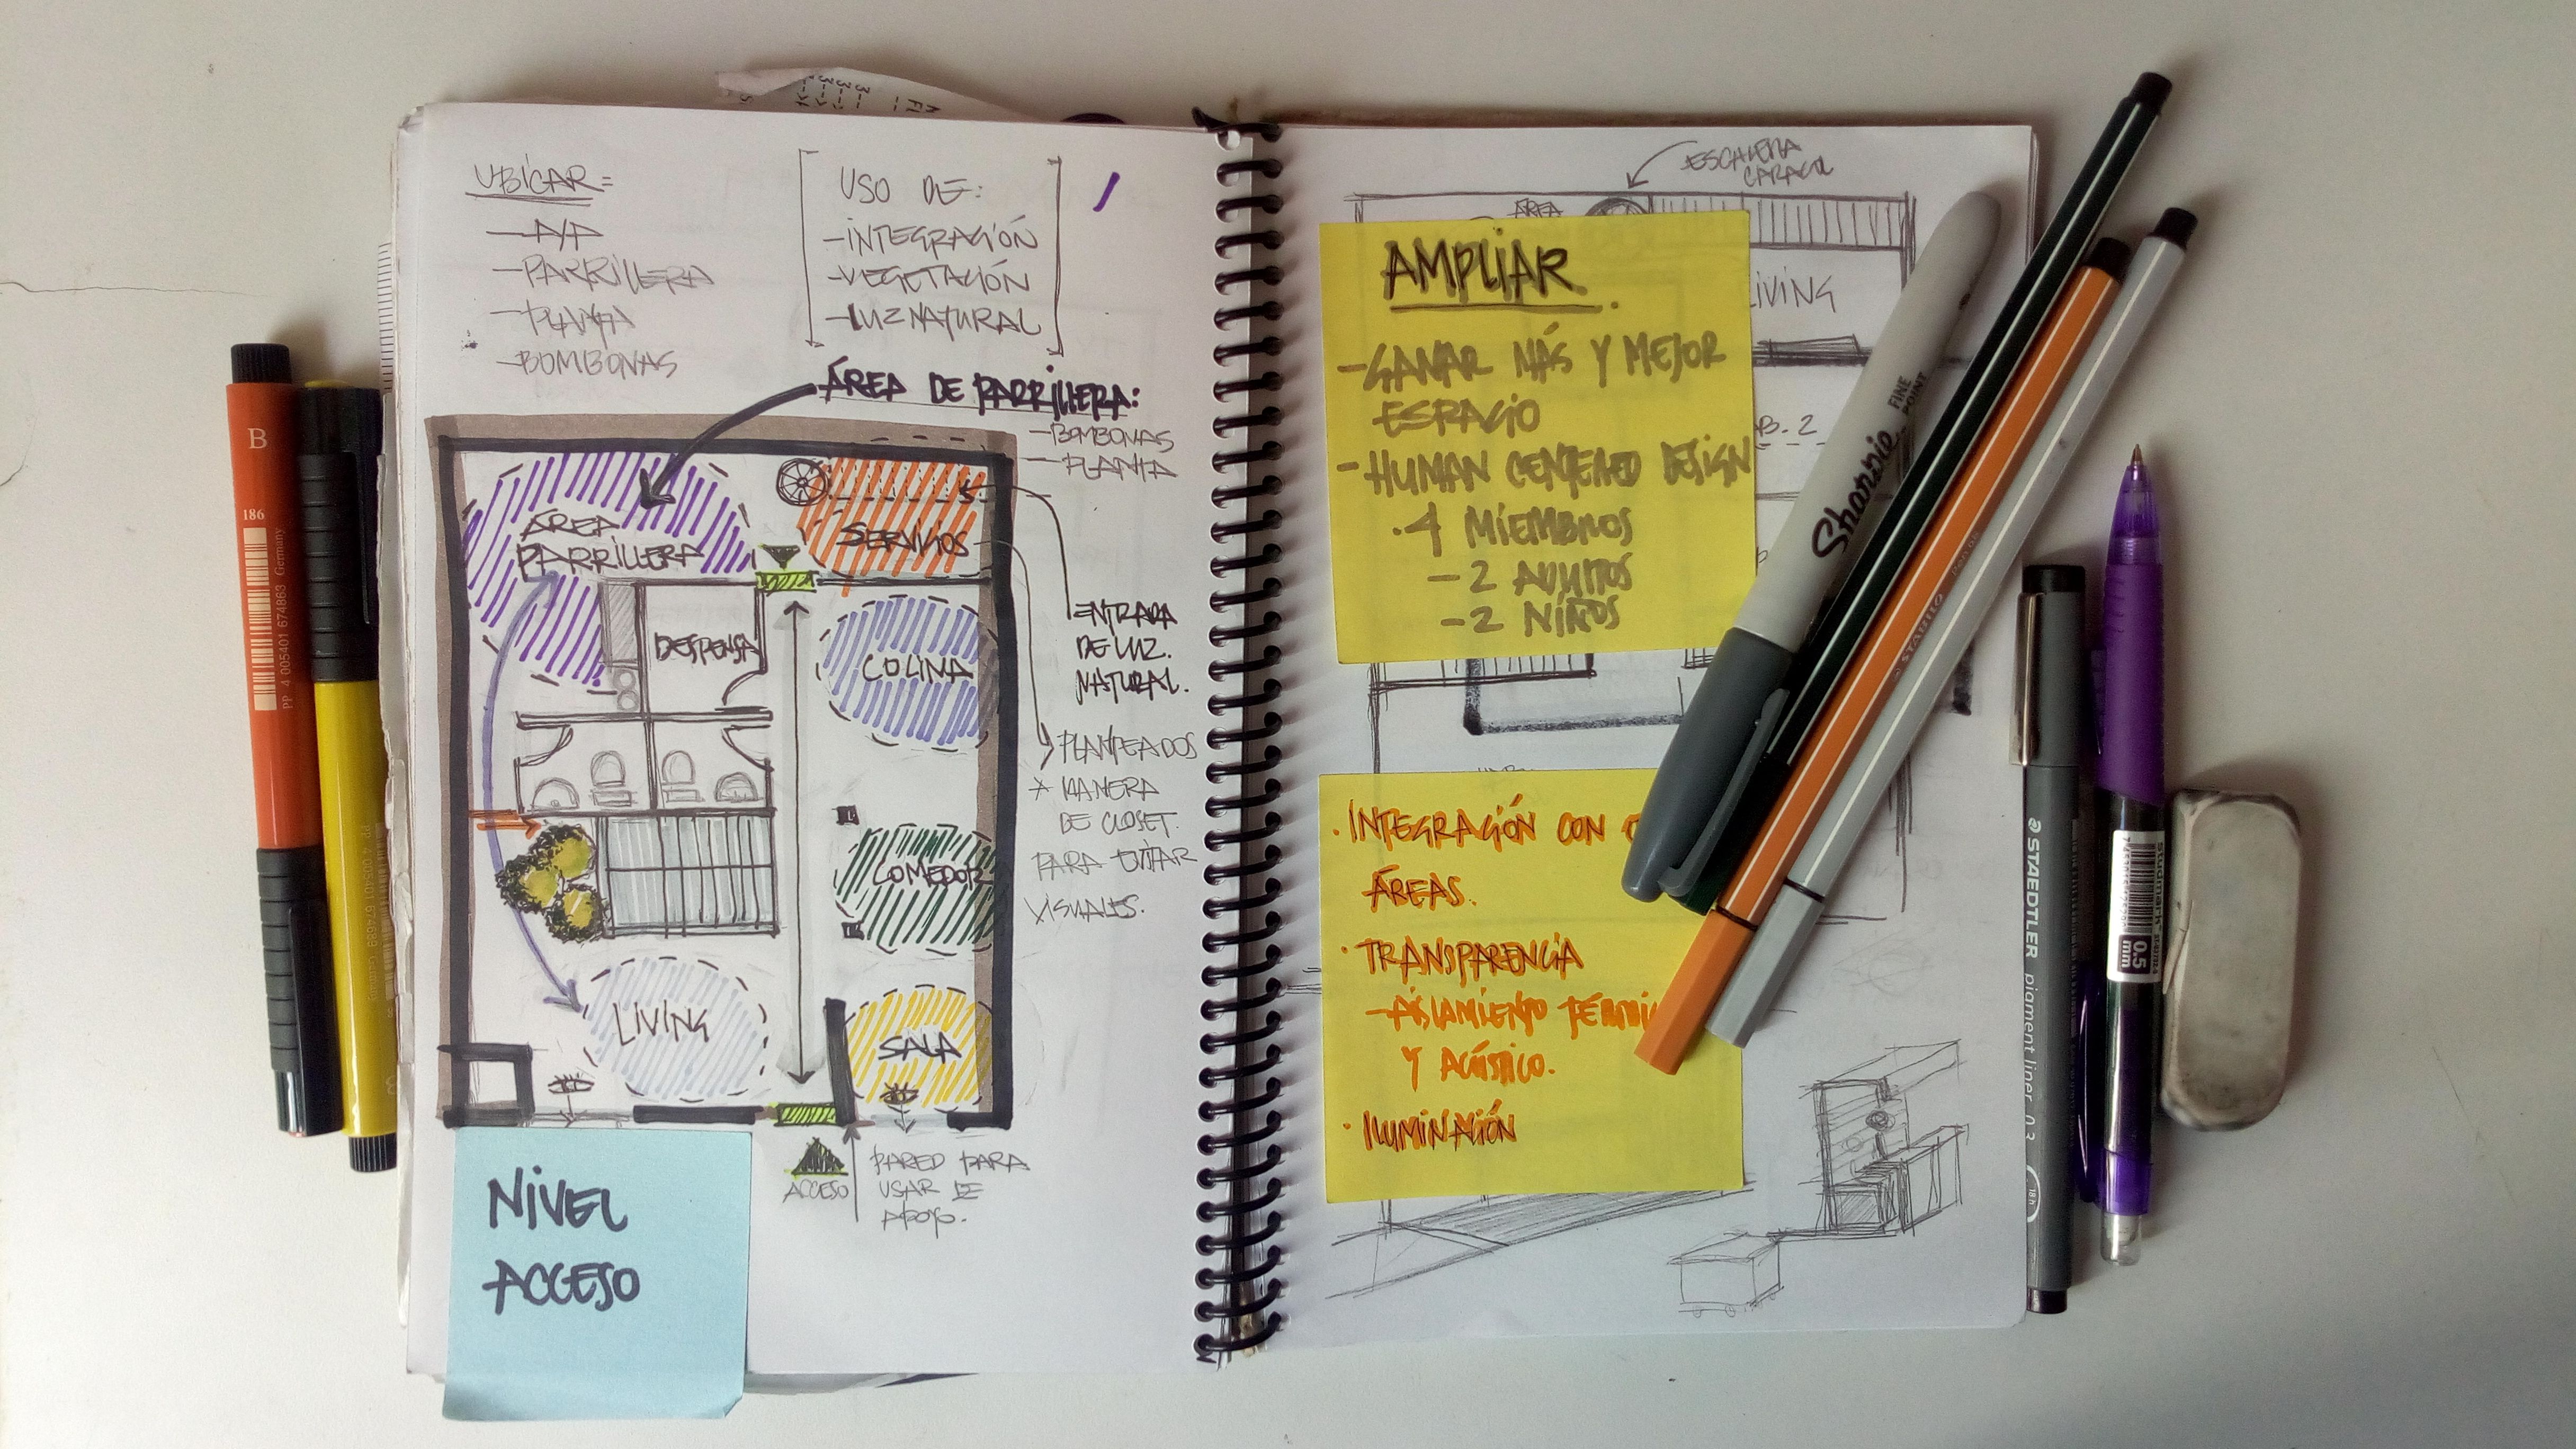 UBICAR:
- A/A
- PARRILLERA
- PLANTA
- BOMBONAS
USO DE:
- INTEGRACIÓN
- VEGETACIÓN
- LUZ NATURAL
ÁREA DE PARRILLERA:
- BOMBONAS
- PLANTA
ÁREA
PARRILLERA
SERVICIOS
DESPENSA
COCINA
COMEDOR
LIVING
SALA
ENTRADA
DE LUZ
NATURAL.
PLANTEADOS
A MANERA
DE CLOSET.
PARA EVITAR
VISUALES.
ACCESO
PARED PARA
USAR DE
APOYO.
NIVEL
ACCESO
ESCALERA
CARACOL
ÁREA
LIVING
AMPLIAR
- GANAR MÁS Y MEJOR
ESPACIO
- HUMAN CENTERED DESIGN
· 4 MIEMBROS
- 2 ADULTOS
- 2 NIÑOS
· INTEGRACIÓN CON
ÁREAS.
· TRANSPARENCIA
- AISLAMIENTO TÉRMI
Y ACÚSTICO.
· ILUMINACIÓN
B
186
PP 4 005401 674863 Germany
Sharpie
FINE
POINT
STABILO
STAEDTLER pigment liner 0.3
studmark
0.5
mm